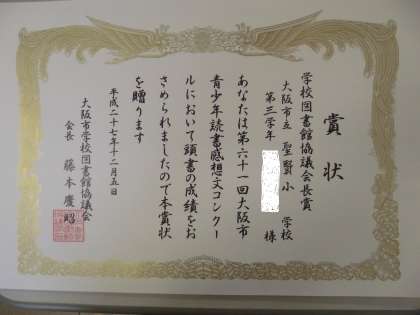 賞状
学校図書館協議会長賞
大阪市立 聖賢小 学校
第三学年 様
あなたは第六十一回大阪市
青少年読書感想文コンクー
ルにおいて頭書の成績をお
さめられましたので本賞状
を贈ります
平成二十七年十二月五日
大阪市学校図書館協議会
会長 藤本慶昭